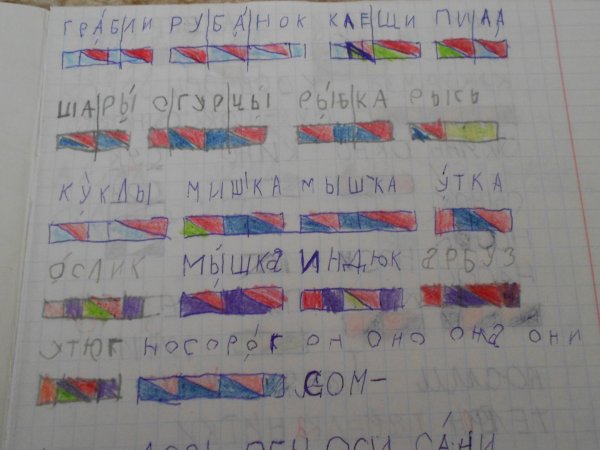 ГРА́БЛИ РУБА́НОК КЛЕЩИ ПИЛА
ШАРЫ́ ОГУРЦЫ́ РЫ́БКА РЫСЬ
КУ́КЛЫ МИШКА МЫШКА У́ТКА
О́СЛИК МЫ́ШКА ИНДЮК АРБУЗ
УТЮГ НОСОРО́Г ОН ОНО ОНА ОНИ
СОМ–
ОСИ СА́НИ